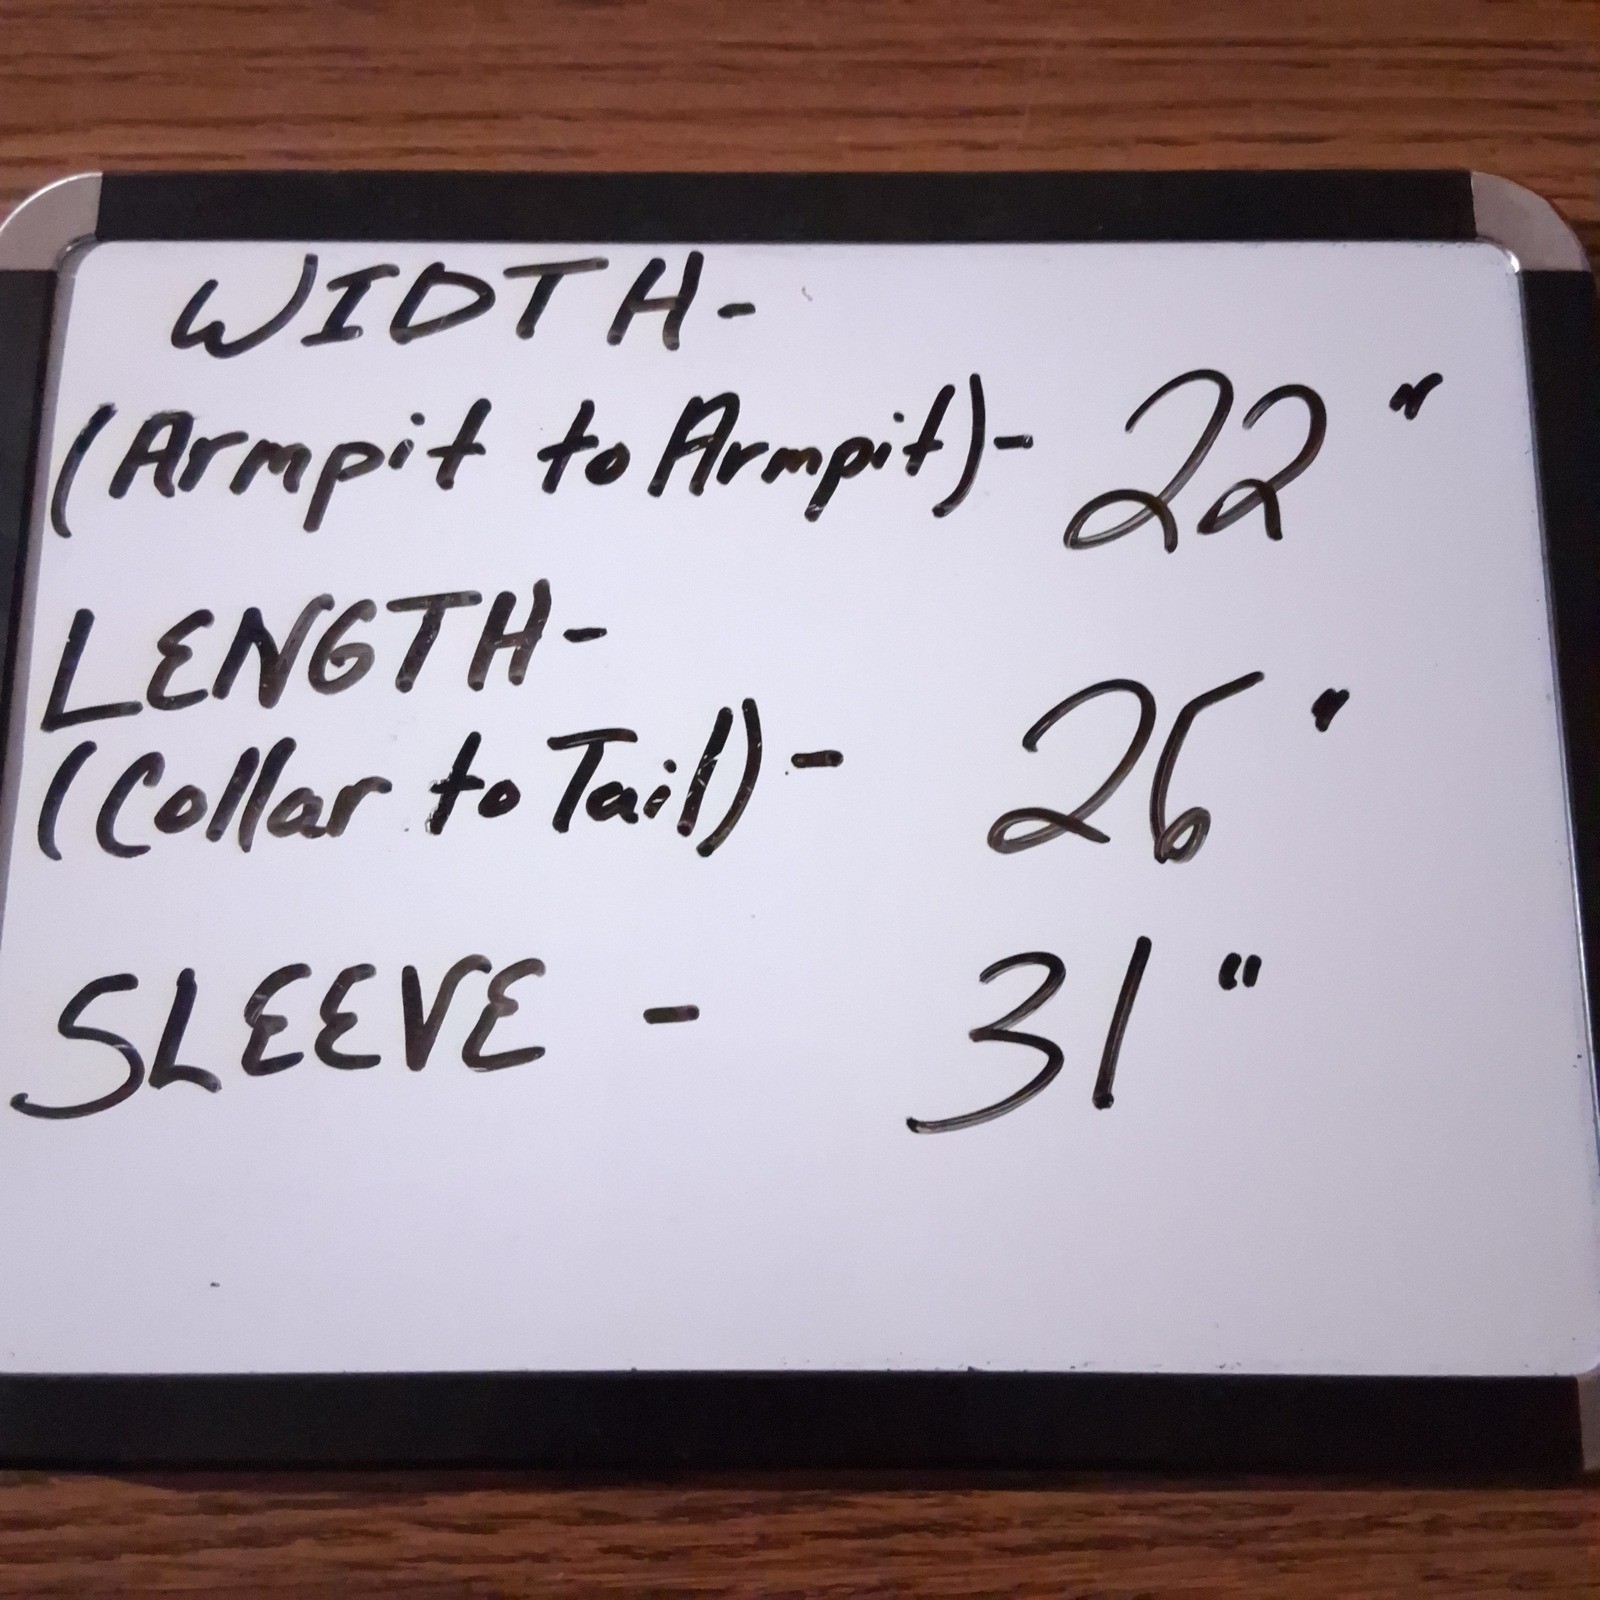 WIDTH-
(Armpit to Armpit)- 22"
LENGTH-
(Collar to Tail)- 26"
SLEEVE - 31"